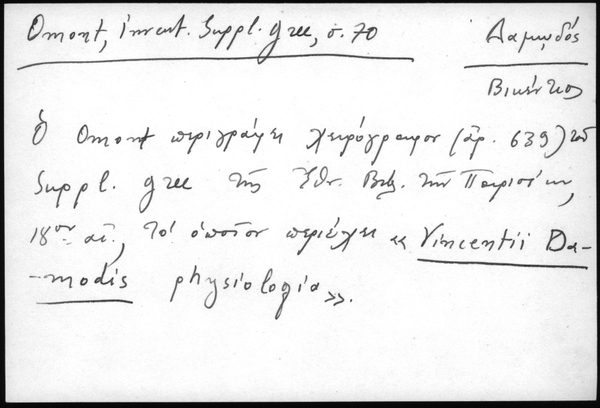 Omont, invent. Suppl. grec, σ. 70
Δαμωδός
Βικέντιος
Ὁ Omont περιγράφει χειρόγραφον (ἀρ. 639) τοῦ
Suppl. grec τῆς Ἐθν. Βιβ. τῶν Παρισίων,
18ου αἰ., τό ὁποῖον περιέχει « Vincentii Da-
-modis physiologia».